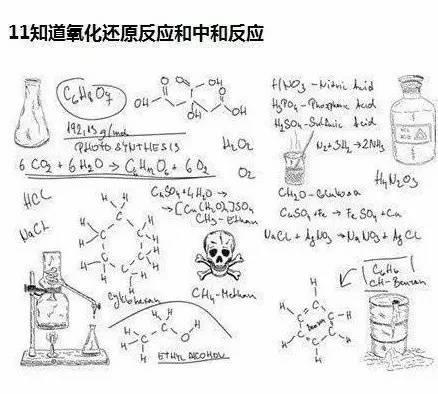 11知道氧化还原反应和中和反应
C6H8O7
192,13 g/mol
PHOTOSYNTHESIS
6 CO2 + 6 H2O → C6H12O6 + 6 O2
H2O2
O2
HCL
NaCl
CuSO4 + 4H2O →
→ [Cu(H2O)4]SO4
CH3-Ethan
CH4-Methan
Cyklohexan
ETHYL ALCOHOL
HNO3 - Nitric Acid
H3PO4 - Phosphoric Acid
H2SO4 - Sulfuric Acid
N2 + 3H2 → 2NH3
H4N2O3
CH2O - Glukosa
CuSO4 + Fe → FeSO4 + Cu
NaCl + AgNO3 → NaNO3 + AgCl
C6H6
CH-Benzen
Benzen